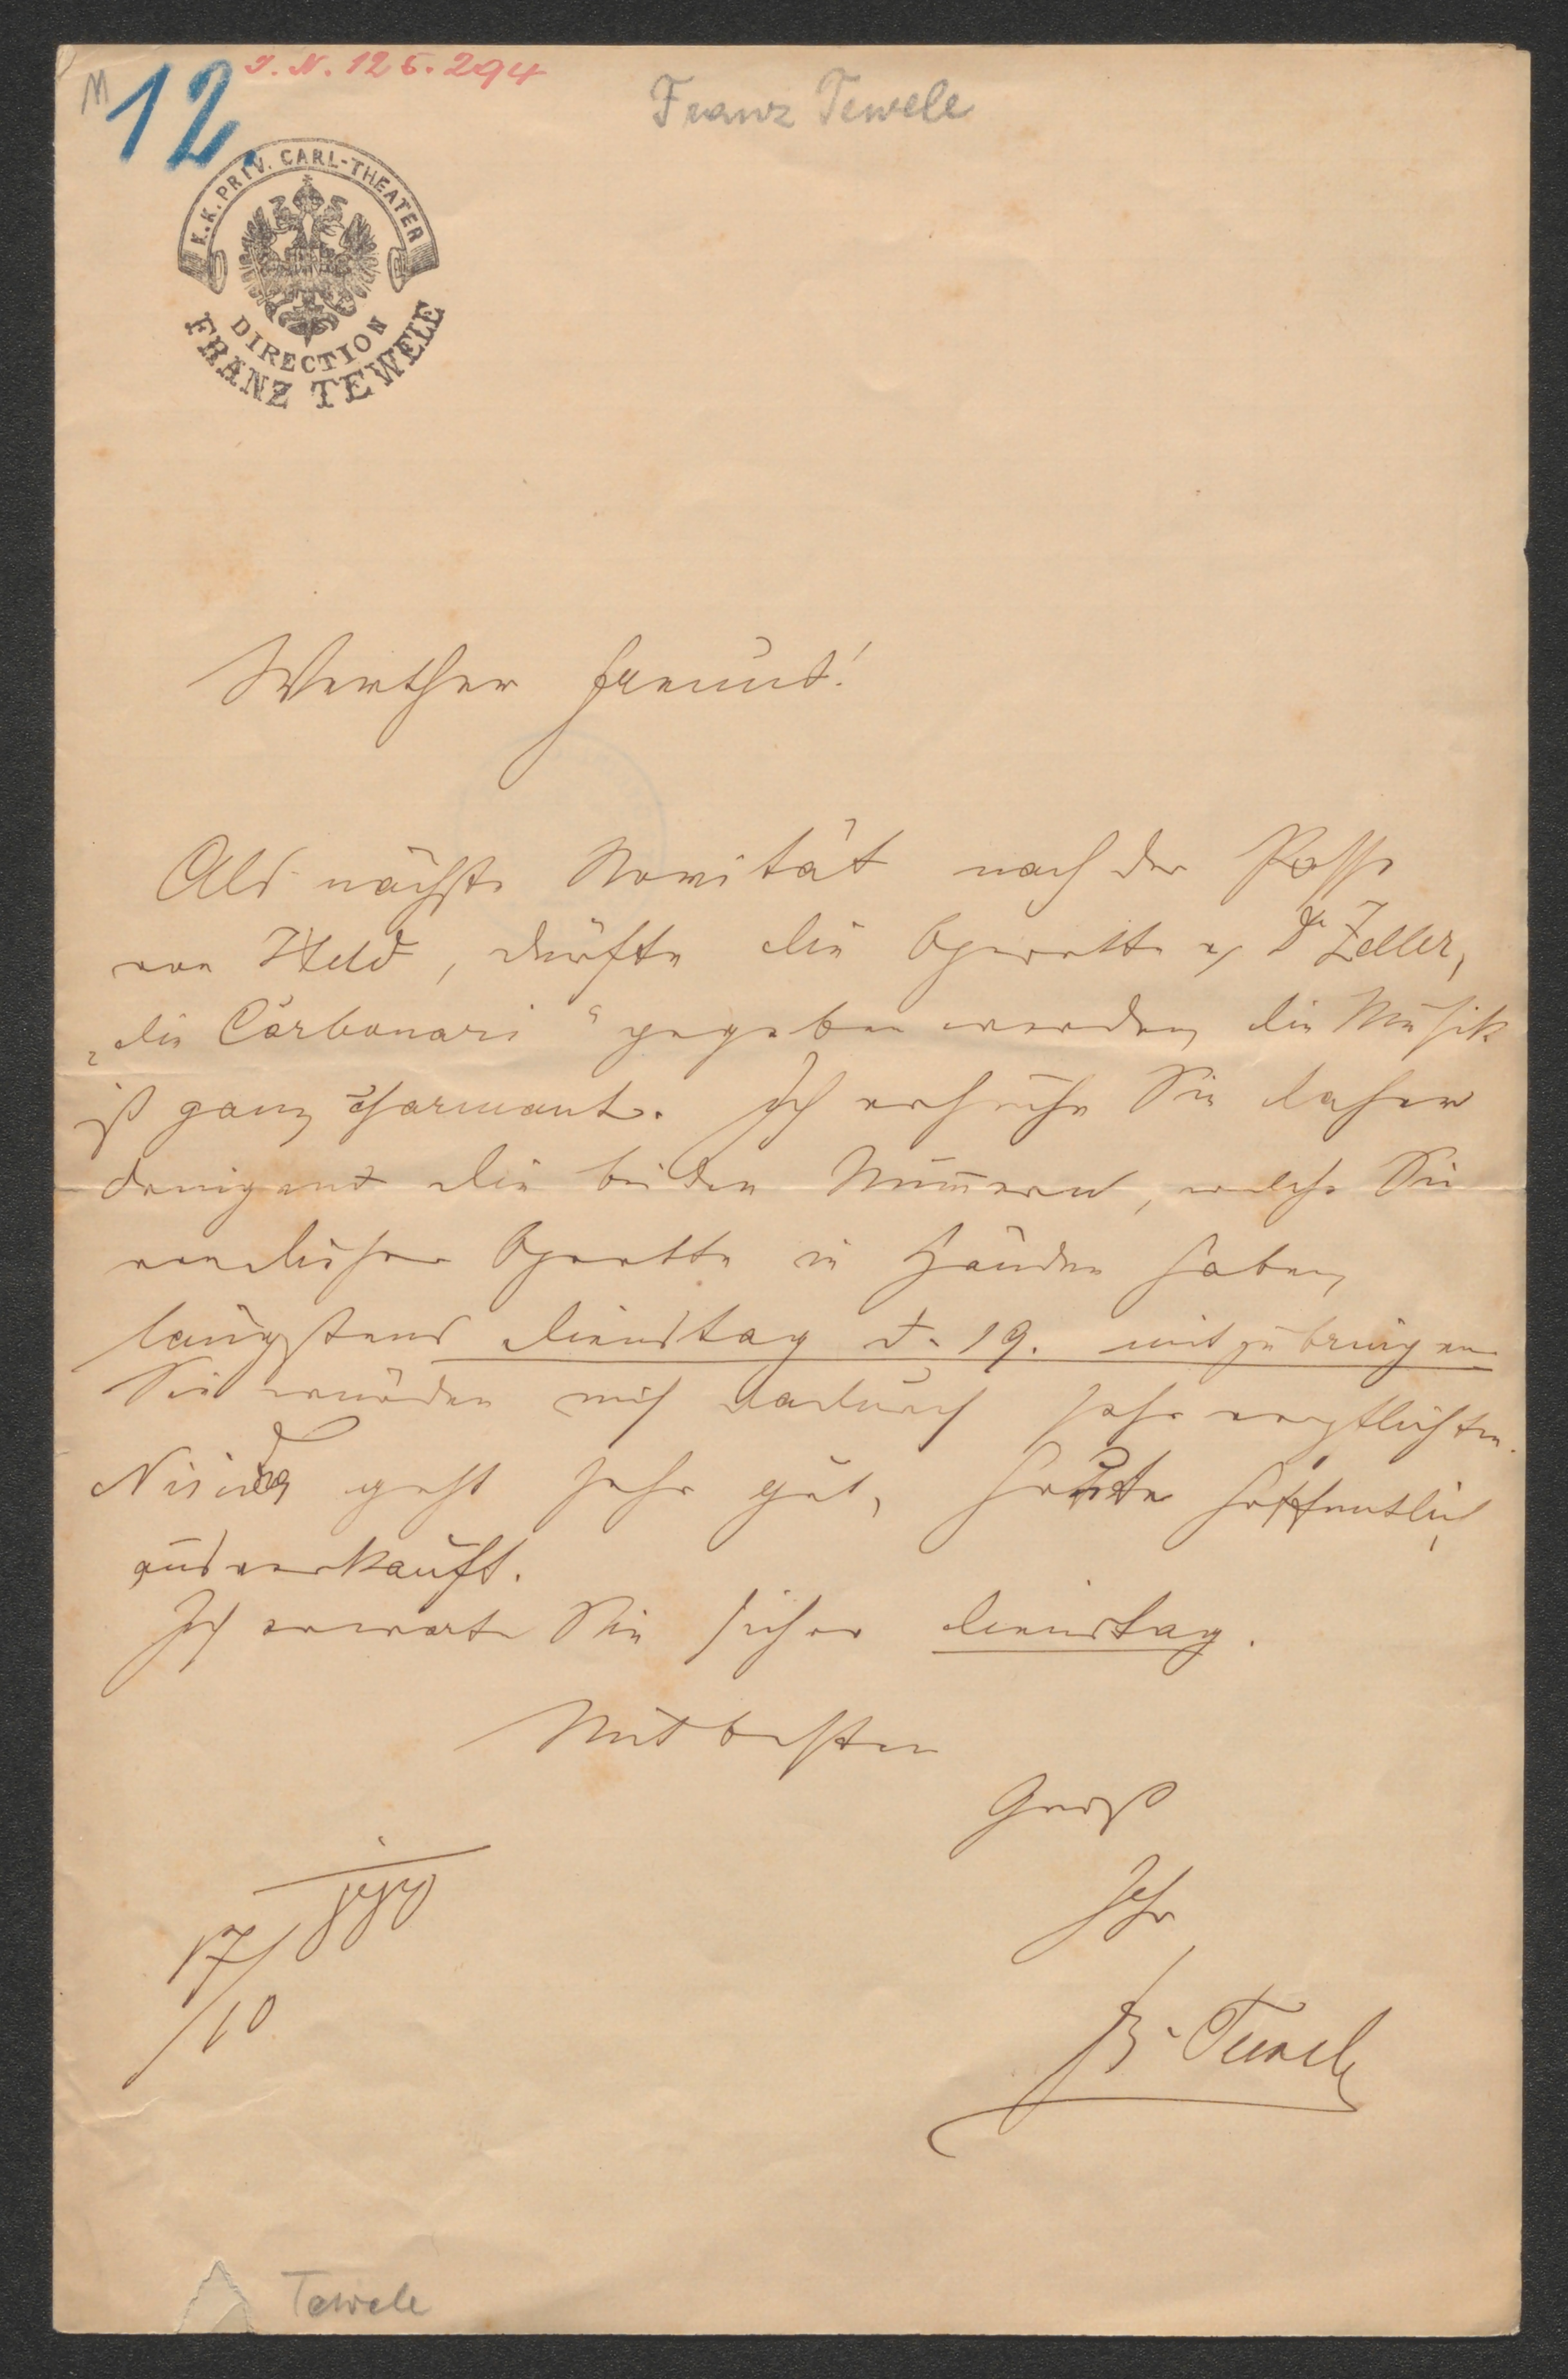 M
12.
I. N. 125.294
Franz Tewele
K. K. PRIV. CARL-THEATER
DIRECTION
FRANZ TEWELE
Werther Freund!
Als nächste Novität nach der Posse
von Held, dürfte die Operette v. Dr Zeller,
„die Carbonari“ gegeben werden, die Musik
ist ganz charmant. Ich ersuche Sie daher
dringend die beiden Num̅ern, welche Sie
von dieser Operette in Händen haben,
längstens dienstag d. 19. mitzubringen
Sie würden mich dadurch sehr verpflichten.
Nisida geht sehr gut, heute hoffentlich
ausverkauft.
Ich erwarte Sie sicher dienstag.
Mit besten
Gruß
Ihr
Fr. Tewele
17/10 880
Tewele